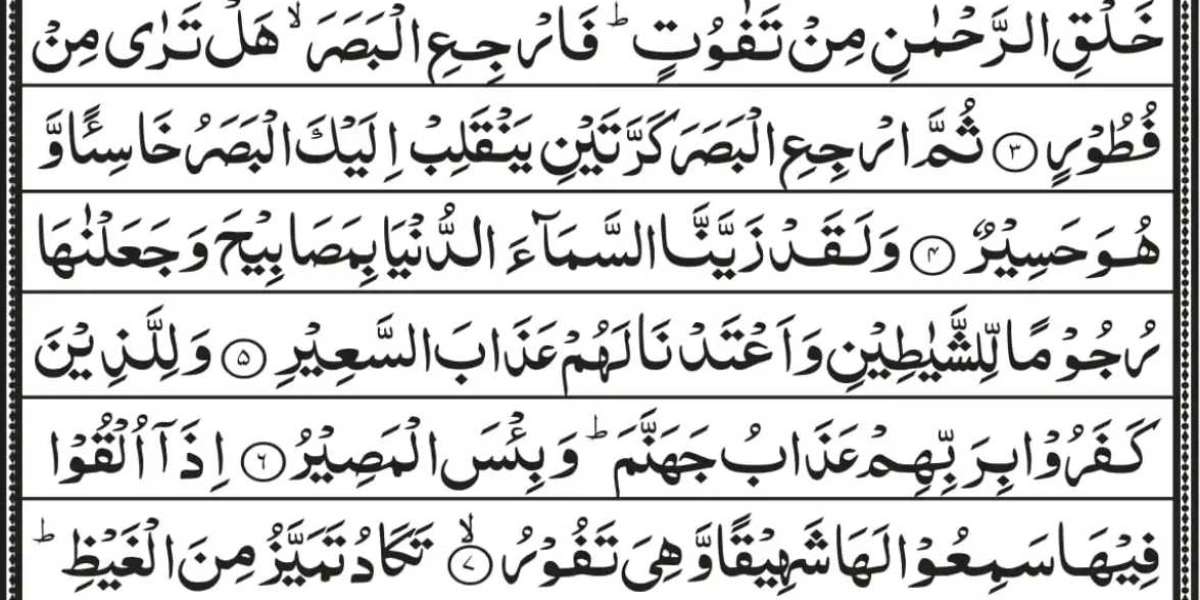 خَلْقِ الرَّحْمٰنِ مِنْ تَفٰوُتٍ ؕ فَارْجِعِ الْبَصَرَ ۙ هَلْ تَرٰى مِنْ
فُطُوْرٍ ﴿۳﴾ ثُمَّ ارْجِعِ الْبَصَرَ كَرَّتَيْنِ يَنْقَلِبْ اِلَيْكَ الْبَصَرُ خَاسِئًا وَّ
هُوَ حَسِيْرٌ ﴿۴﴾ وَلَقَدْ زَيَّنَّا السَّمَآءَ الدُّنْيَا بِمَصَابِيْحَ وَجَعَلْنٰهَا
رُجُوْمًا لِّلشَّيٰطِيْنِ وَاَعْتَدْنَا لَهُمْ عَذَابَ السَّعِيْرِ ﴿۵﴾ وَلِلَّذِيْنَ
كَفَرُوْا بِرَبِّهِمْ عَذَابُ جَهَنَّمَ ؕ وَبِئْسَ الْمَصِيْرُ ﴿۶﴾ اِذَاۤ اُلْقُوْا
فِيْهَا سَمِعُوْا لَهَا شَهِيْقًا وَّهِىَ تَفُوْرُ ۙ﴿۷﴾ تَكَادُ تَمَيَّزُ مِنَ الْغَيْظِ ؕ